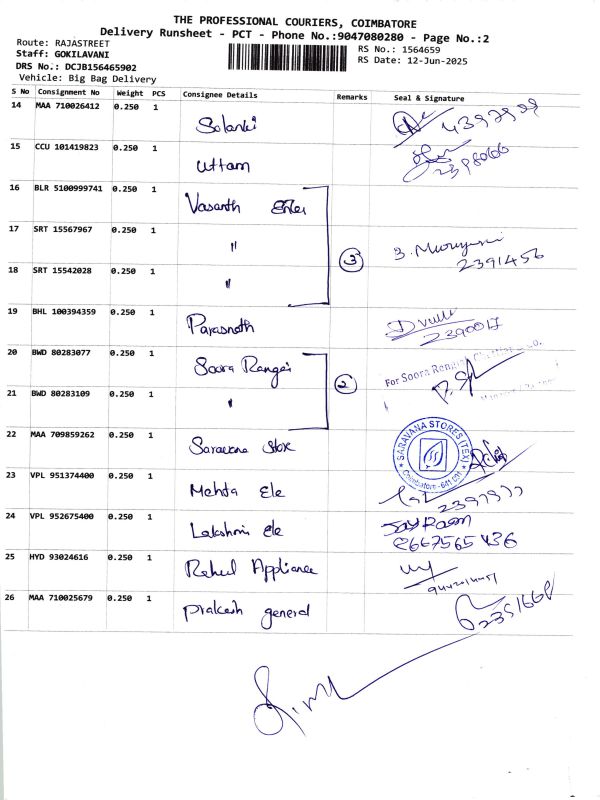 THE PROFESSIONAL COURIERS, COIMBATORE
Delivery Runsheet - PCT - Phone No.:9047080280 - Page No.:2
Route: RAJASTREET
Staff: GOKILAVANI
DRS No.: DCJB156465902
Vehicle: Big Bag Delivery
RS No.: 1564659
RS Date: 12-Jun-2025
S No Consignment No Weight PCS Consignee Details Remarks Seal & Signature
14 MAA 710026412 0.250 1 Solanki
15 CCU 101419823 0.250 1 Uttam
16 BLR 5100999741 0.250 1 Vasanth
17 SRT 15567967 0.250 1 " 3 2391456
18 SRT 15542028 0.250 1 "
19 BHL 100394359 0.250 1 Parasnath 2390017
20 BWD 80283077 0.250 1 Soora Rangai For Soora
21 BWD 80283109 0.250 1 " 2
22 MAA 709859262 0.250 1 Saravana Store SARAVANA STORES (TEX) Coimbatore - 641 001
23 VPL 951374400 0.250 1 Mehta Ele
24 VPL 952675400 0.250 1 Lakshmi Ele Jay Raam
8667565436
25 HYD 93024616 0.250 1 Rahul Appliance
26 MAA 710025679 0.250 1 Prakash general 2351668